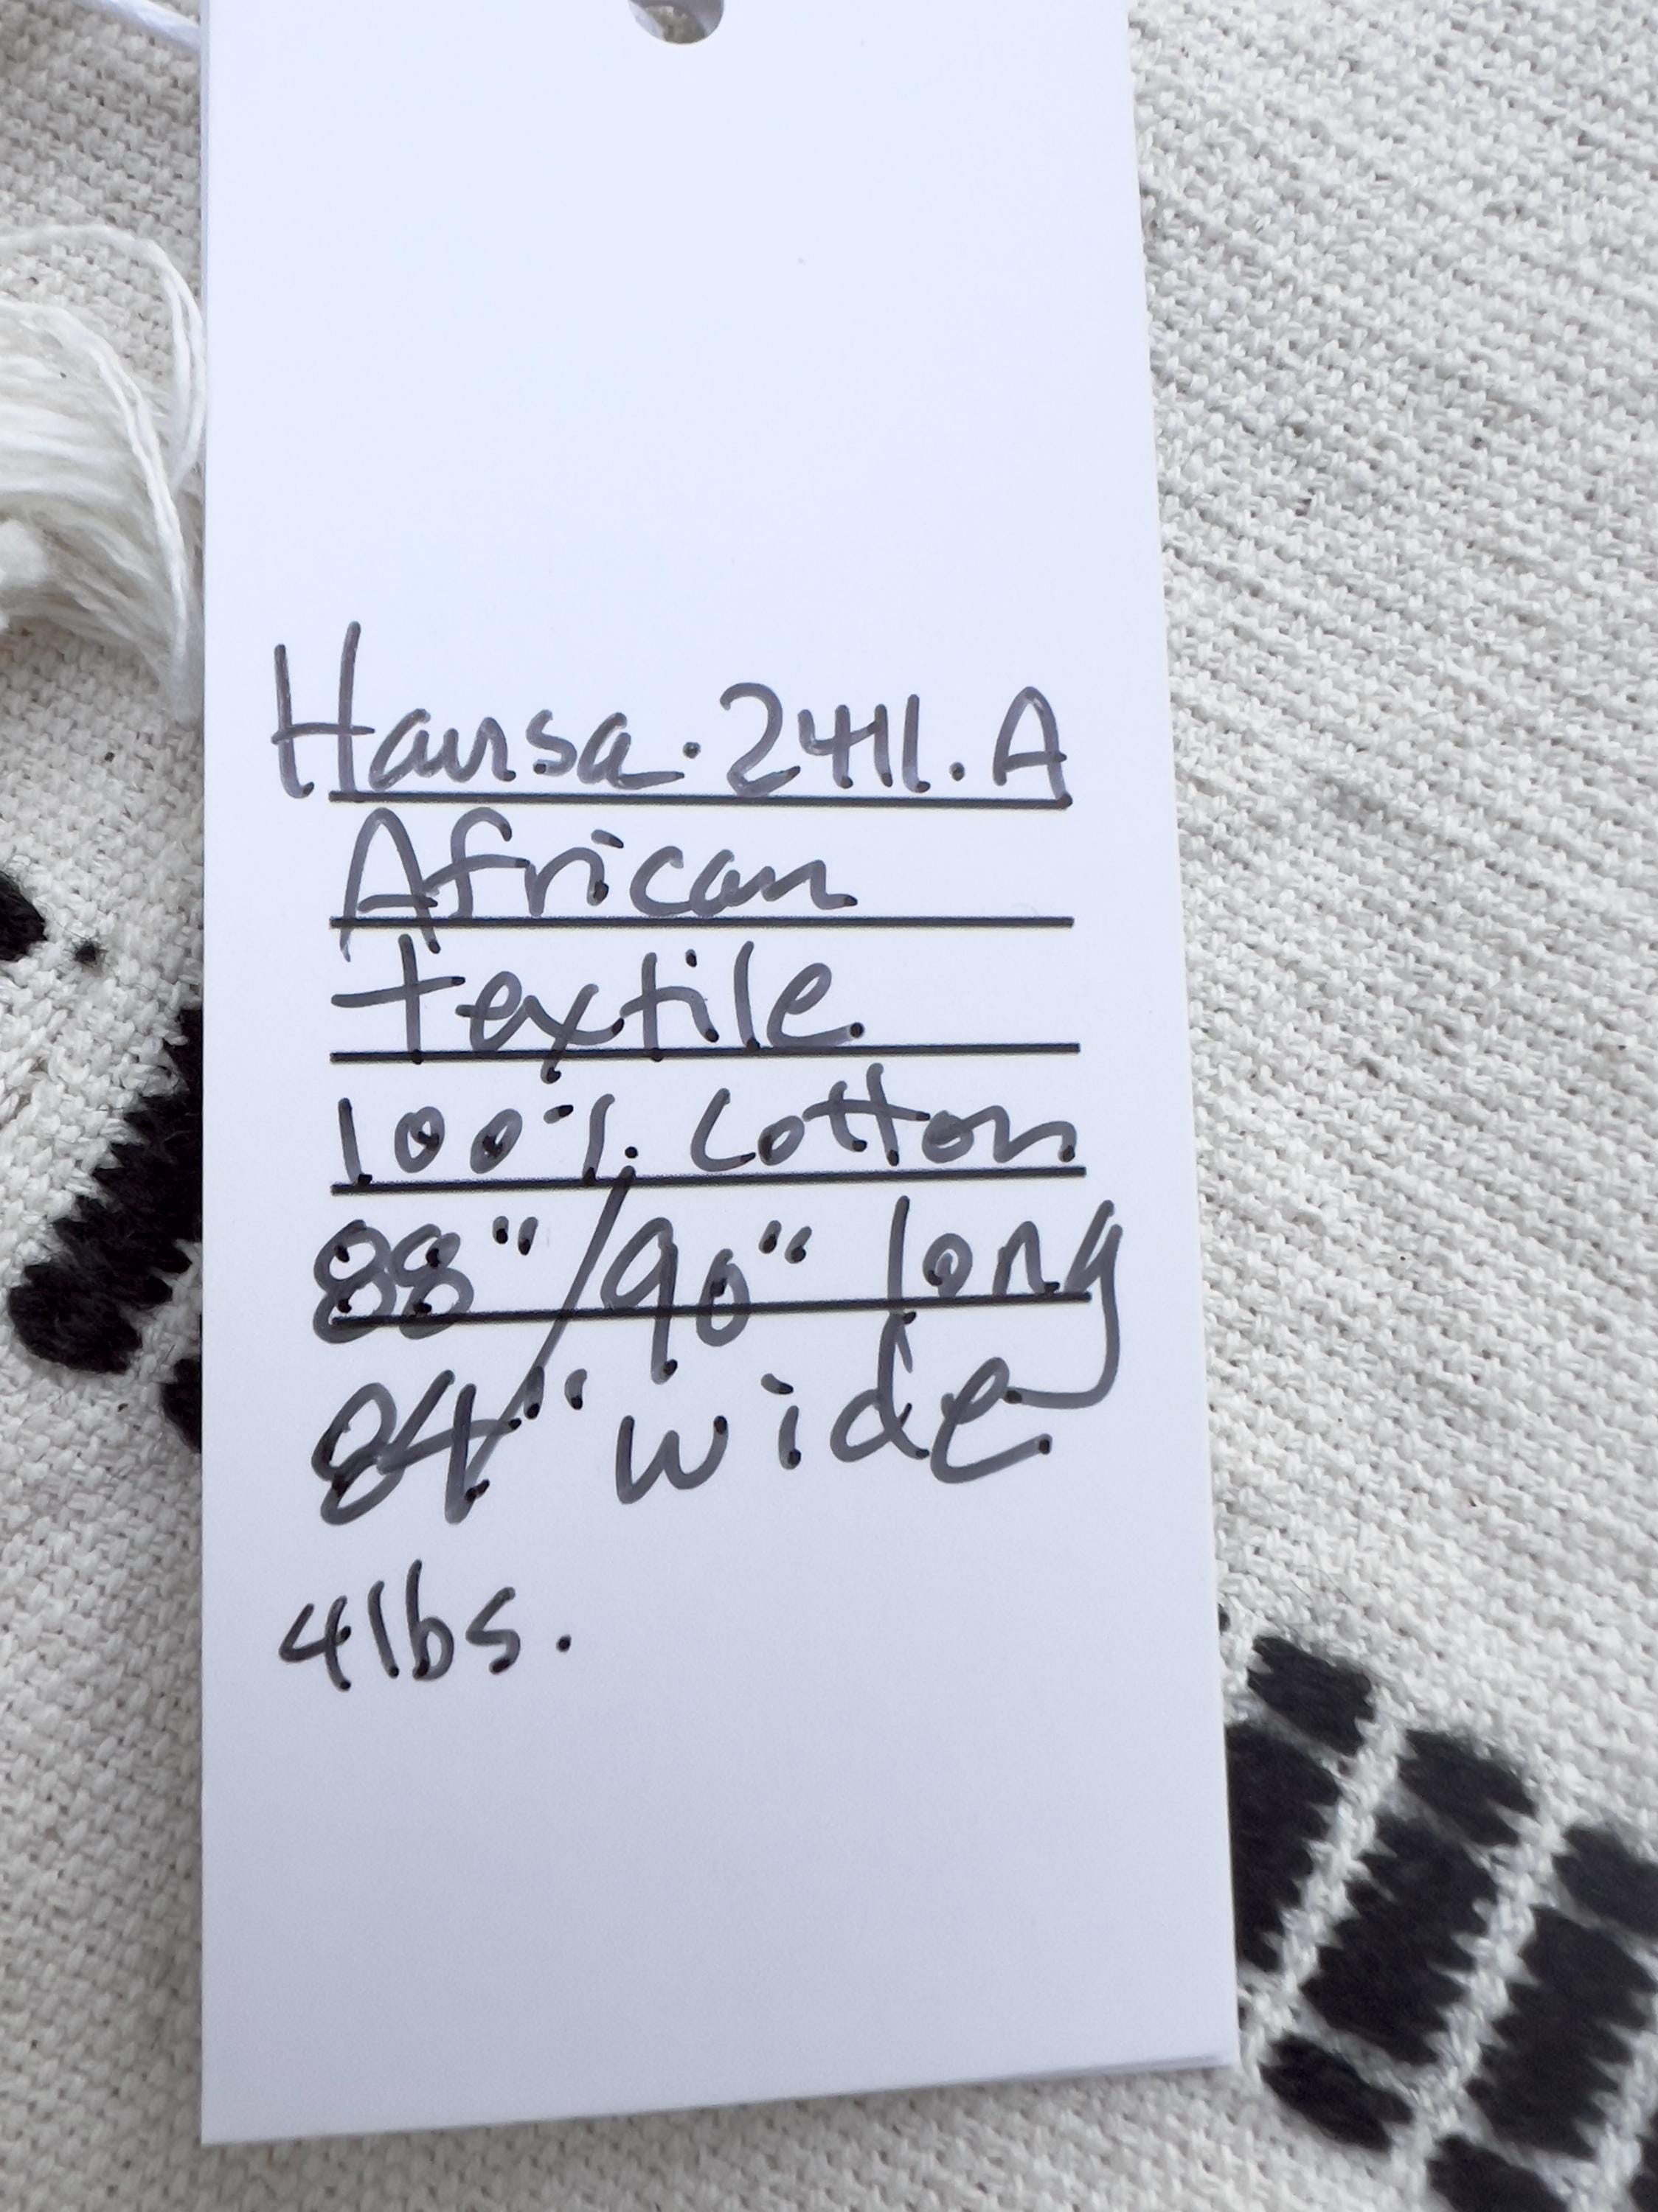 Hausa. 2411. A
African
Textile
100% Cotton
88"/90" long
84" wide
4lbs.